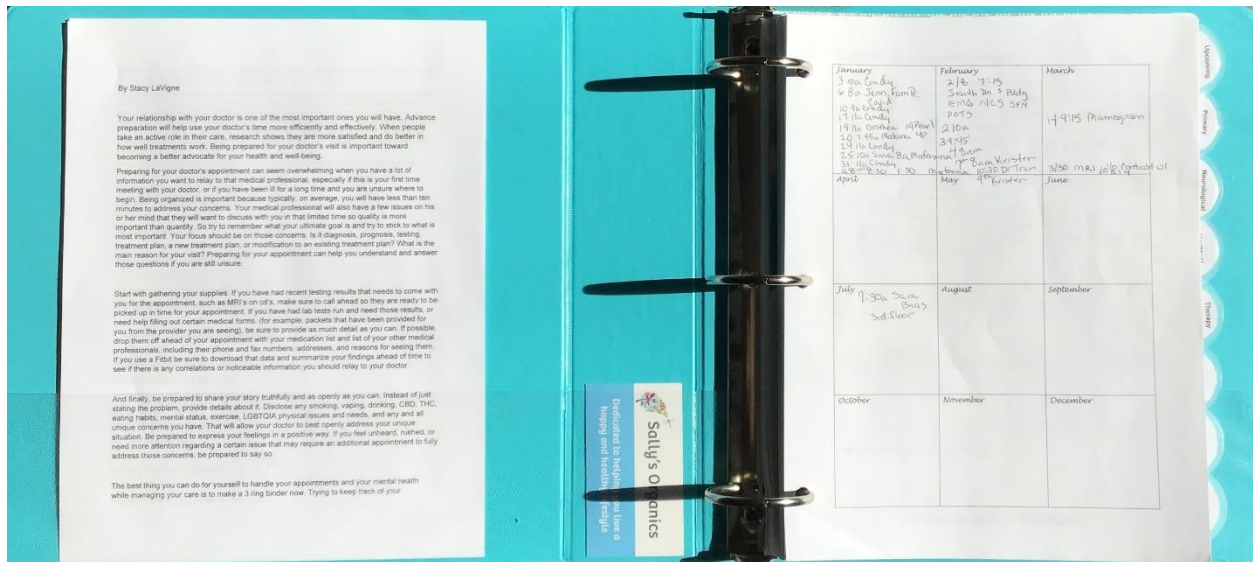 By Stacy LaVigne
Your relationship with your doctor is one of the most important ones you will have. Advance
preparation will help use your doctor's time more efficiently and effectively. When people
take an active role in their care, research shows they are more satisfied and do better in
how well treatments work. Being prepared for your doctor's visit is important toward
becoming a better advocate for your health and well-being.
Preparing for your doctor's appointment can seem overwhelming when you have a lot of
information you want to relay to that medical professional, especially if this is your first time
meeting with your doctor, or if you have been ill for a long time and you are unsure where to
begin. Being organized is important because typically, on average, you will have less than ten
minutes to address your concerns. Your medical professional will also have a few issues on his
or her mind that they will want to discuss with you in that limited time so quality is more
important than quantity. So try to remember what your ultimate goal is and try to stick to what is
most important. Your focus should be on those concerns. Is it diagnosis, prognosis, testing,
treatment plan, a new treatment plan, or modification to an existing treatment plan? What is the
main reason for your visit? Preparing for your appointment can help you understand and answer
those questions if you are still unsure.
Start with gathering your supplies. If you have had recent testing results that needs to come with
you for the appointment, such as MRI's on cd's, make sure to call ahead so they are ready to be
picked up in time for your appointment. If you have had lab tests run and need those results, or
need help filling out certain medical forms, (for example, packets that have been provided for
you from the provider you are seeing), be sure to provide as much detail as you can. If possible,
drop them off ahead of your appointment with your medication list and list of your other medical
professionals, including their phone and fax numbers, addresses, and reasons for seeing them.
If you use a Fitbit be sure to download that data and summarize your findings ahead of time to
see if there is any correlations or noticeable information you should relay to your doctor.
And finally, be prepared to share your story truthfully and as openly as you can. Instead of just
stating the problem, provide details about it. Disclose any smoking, vaping, drinking, CBD, THC,
eating habits, mental status, exercise, LGBTQIA physical issues and needs, and any and all
unique concerns you have. That will allow your doctor to best openly address your unique
situation. Be prepared to express your feelings in a positive way. If you feel unheard, rushed, or
need more attention regarding a certain issue that may require an additional appointment to fully
address those concerns, be prepared to say so.
The best thing you can do for yourself to handle your appointments and your mental health
while managing your care is to make a 3 ring binder now. Trying to keep track of your
Sally's Organics
Dedicated to helping you live a
happy and healthy lifestyle
January
3 10a Cindy
6 8a Jenn
Covid
10 9a Cindy
17 11a Cindy
19 11a
20 7:45a Madonna
24 11a Cindy
25 10a Sara 8a Madonna
31 11a Cindy
8:30 1:30 Madonna 10:30 Dr Tran
February
2/8 7:15
South Bldg
EMG NCS SFN
POTS
2 10a
3 9:45
4 8am
8am Kristen
Kristen
March
14 9:15 Mamogram
3/30 MRI w/o Contrast w/
April
May
June
July
7:30a Sara
3rd floor
August
September
October
November
December
Upcoming
Primary
Neurological
Therapy